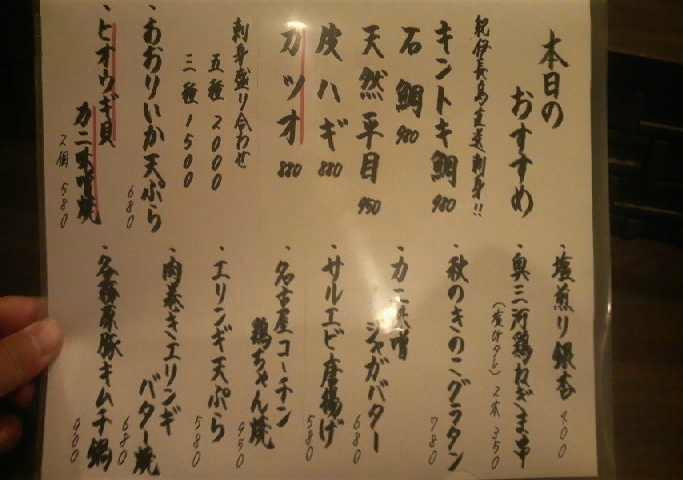 本日の
おすすめ
紀伊長島直送刺身!!
キントキ鯛 980
石鯛 980
天然平目 950
皮ハギ 880
カツオ 880
刺身盛り合わせ
五種 2000
三種 1500
・あおりいか天ぷら 680
・ヒオウギ貝
カニ味噌焼
2個 580
・塩煎り銀杏 400
・奥三河鶏ねぎま串
2本 350
・秋のきのこグラタン 780
・カニ味噌
ジャガバター 680
・サルエビ唐揚げ 580
・名古屋コーチン
鶏ちゃん焼 950
・エリンギ天ぷら 580
・肉巻きエリンギ
バター焼 680
豚キムチ鍋 900